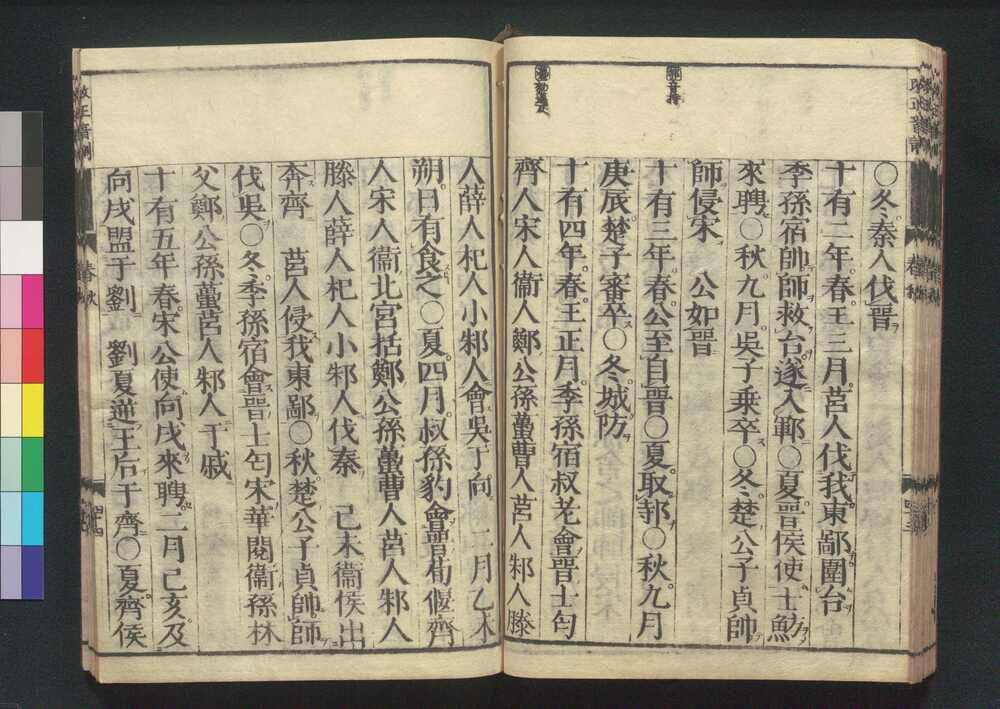 ○冬秦人伐晉
十有二年春王三月莒人伐我東鄙圍台
季孫宿帥師救台遂入鄆○夏晉侯使士魴
來聘○秋九月吳子乗卒○冬楚公子貞帥
師侵宋 公如晉
十有三年春公至自晉○夏取邿○秋九月
庚辰楚子審卒○冬城防
十有四年春王正月季孫宿叔老會晉士匄
齊人宋人衞人鄭公孫蠆曹人莒人邾人滕
人薛人杞人小邾人會吳于向 二月乙未
朔日有食之○夏四月叔孫豹會晉荀偃齊
人宋人衞北宮括鄭公孫蠆曹人莒人邾人
滕人薛人杞人小邾人伐秦 己未衞侯出
奔齊 莒人侵我東鄙○秋楚公子貞帥師
伐吳○冬季孫宿會晉士匄宋華閱衞孫林
父鄭公孫蠆莒人邾人于戚
十有五年春宋公使向戌來聘二月己亥及
向戌盟于劉 劉夏逆王后于齊○夏齊侯
改正音訓
春秋
四十四